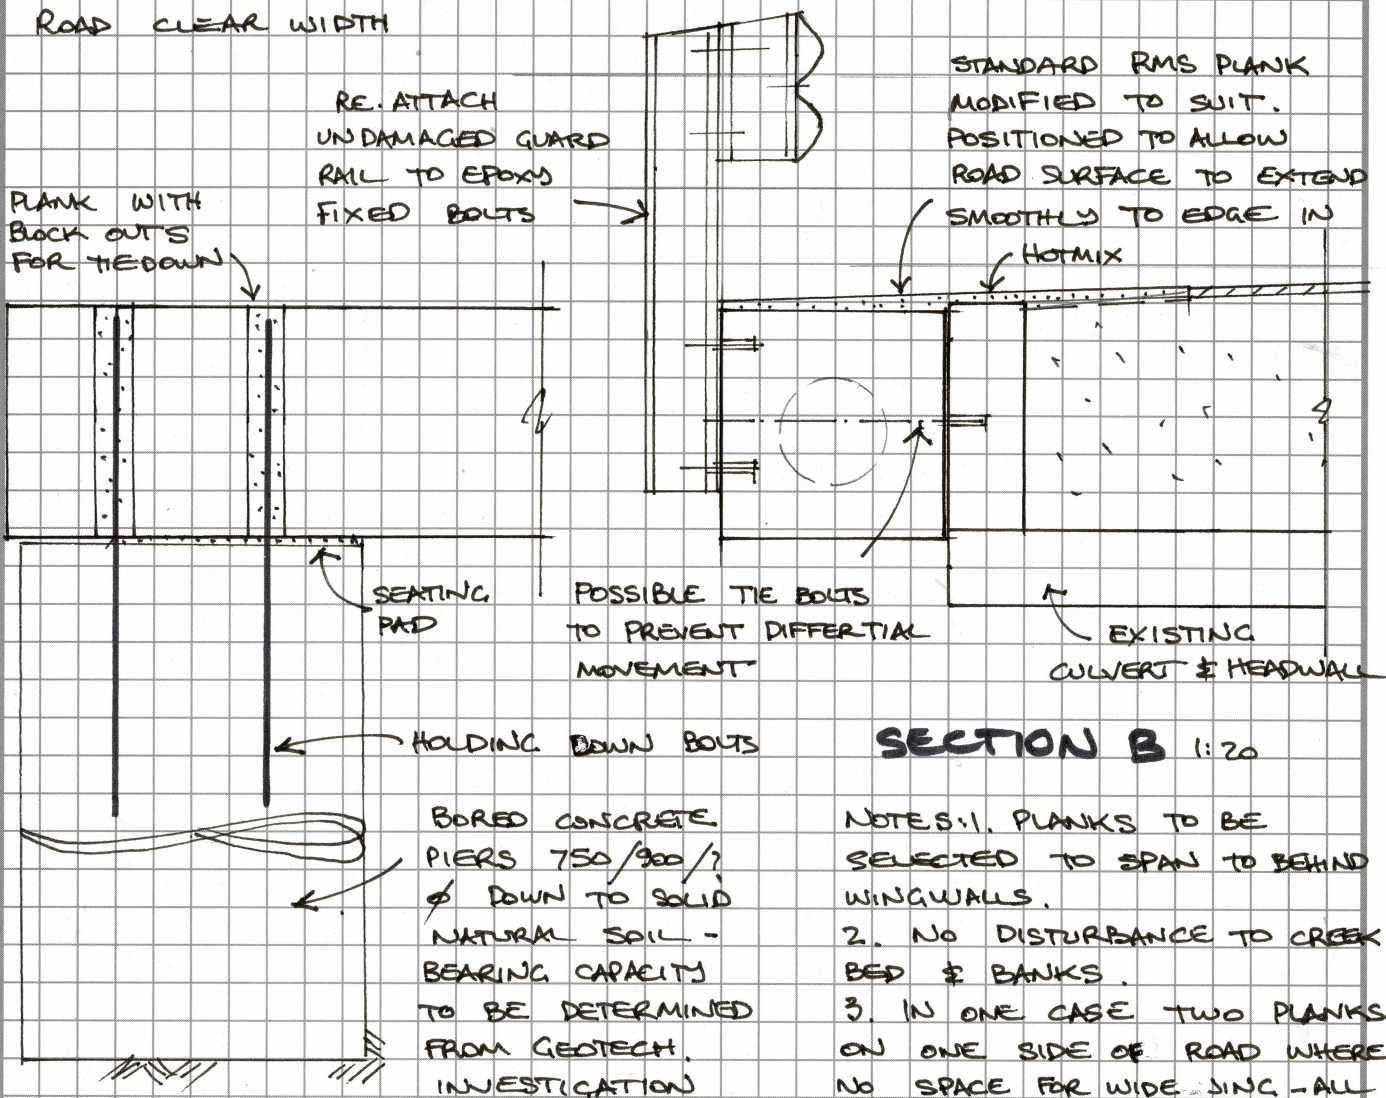 ROAD CLEAR WIDTH
RE. ATTACH
UNDAMAGED GUARD
RAIL TO EPOXY
FIXED BOLTS
STANDARD RMS PLANK
MODIFIED TO SUIT.
POSITIONED TO ALLOW
ROAD SURFACE TO EXTEND
SMOOTHLY TO EDGE IN
HOTMIX
PLANK WITH
BLOCK OUTS
FOR TIEDOWN
SEATING
PAD
POSSIBLE TIE BOLTS
TO PREVENT DIFFERTIAL
MOVEMENT
EXISTING
CULVERT & HEADWALL
HOLDING DOWN BOLTS
SECTION B 1:20
BORED CONCRETE
PIERS 750/900/?
ϕ DOWN TO SOLID
NATURAL SOIL -
BEARING CAPACITY
TO BE DETERMINED
FROM GEOTECH.
INVESTIGATION
NOTES:1. PLANKS TO BE
SELECTED TO SPAN TO BEHIND
WINGWALLS.
2. NO DISTURBANCE TO CREEK
BED & BANKS.
3. IN ONE CASE TWO PLANKS
ON ONE SIDE OF ROAD WHERE
NO SPACE FOR WIDE - ALL